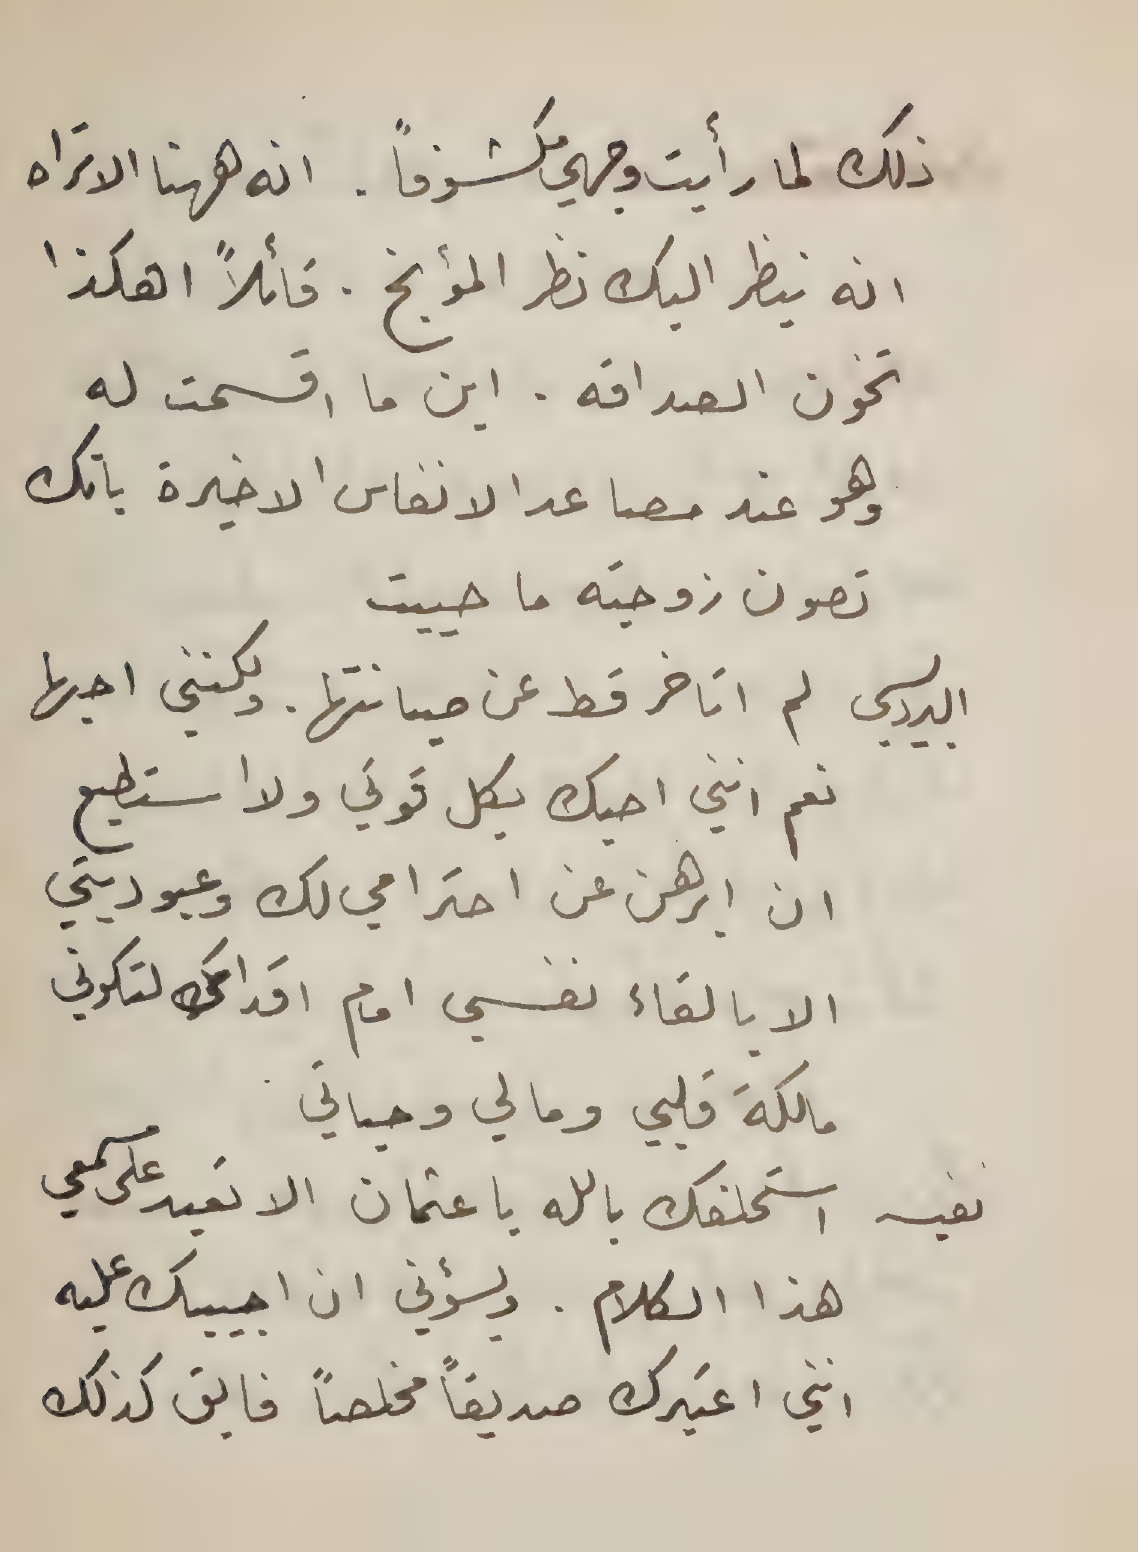 ذلك لما رأيت وجهي مكشوفاً . انه ههنا الا تراه
انه ينظر اليك نظر المؤبخ . قائلاً اهكذا
تخون الصداقه . اين ما اقسمت له
وهو عند مصاعد الانفاس الاخيرة بانك
تصون زوجته ما حييت
البرديسي لم اتاخر قط عن صيانتها . ولكنني احبها
نعم انني احبك بكل قوتي ولا استطيع
ان ابرهن عن احترامي لك وعبوديتي
الا بالقاء نفسي امام اقدامك لتكوني
مالكة قلبي ومالي وحياتي
نفيسه استحلفك بالله يا عثمان الا تعيد على سمعي
هذا الكلام . ويسؤني ان اجيبك عليه
انني اعتبرك صديقاً مخلصاً فابق كذلك